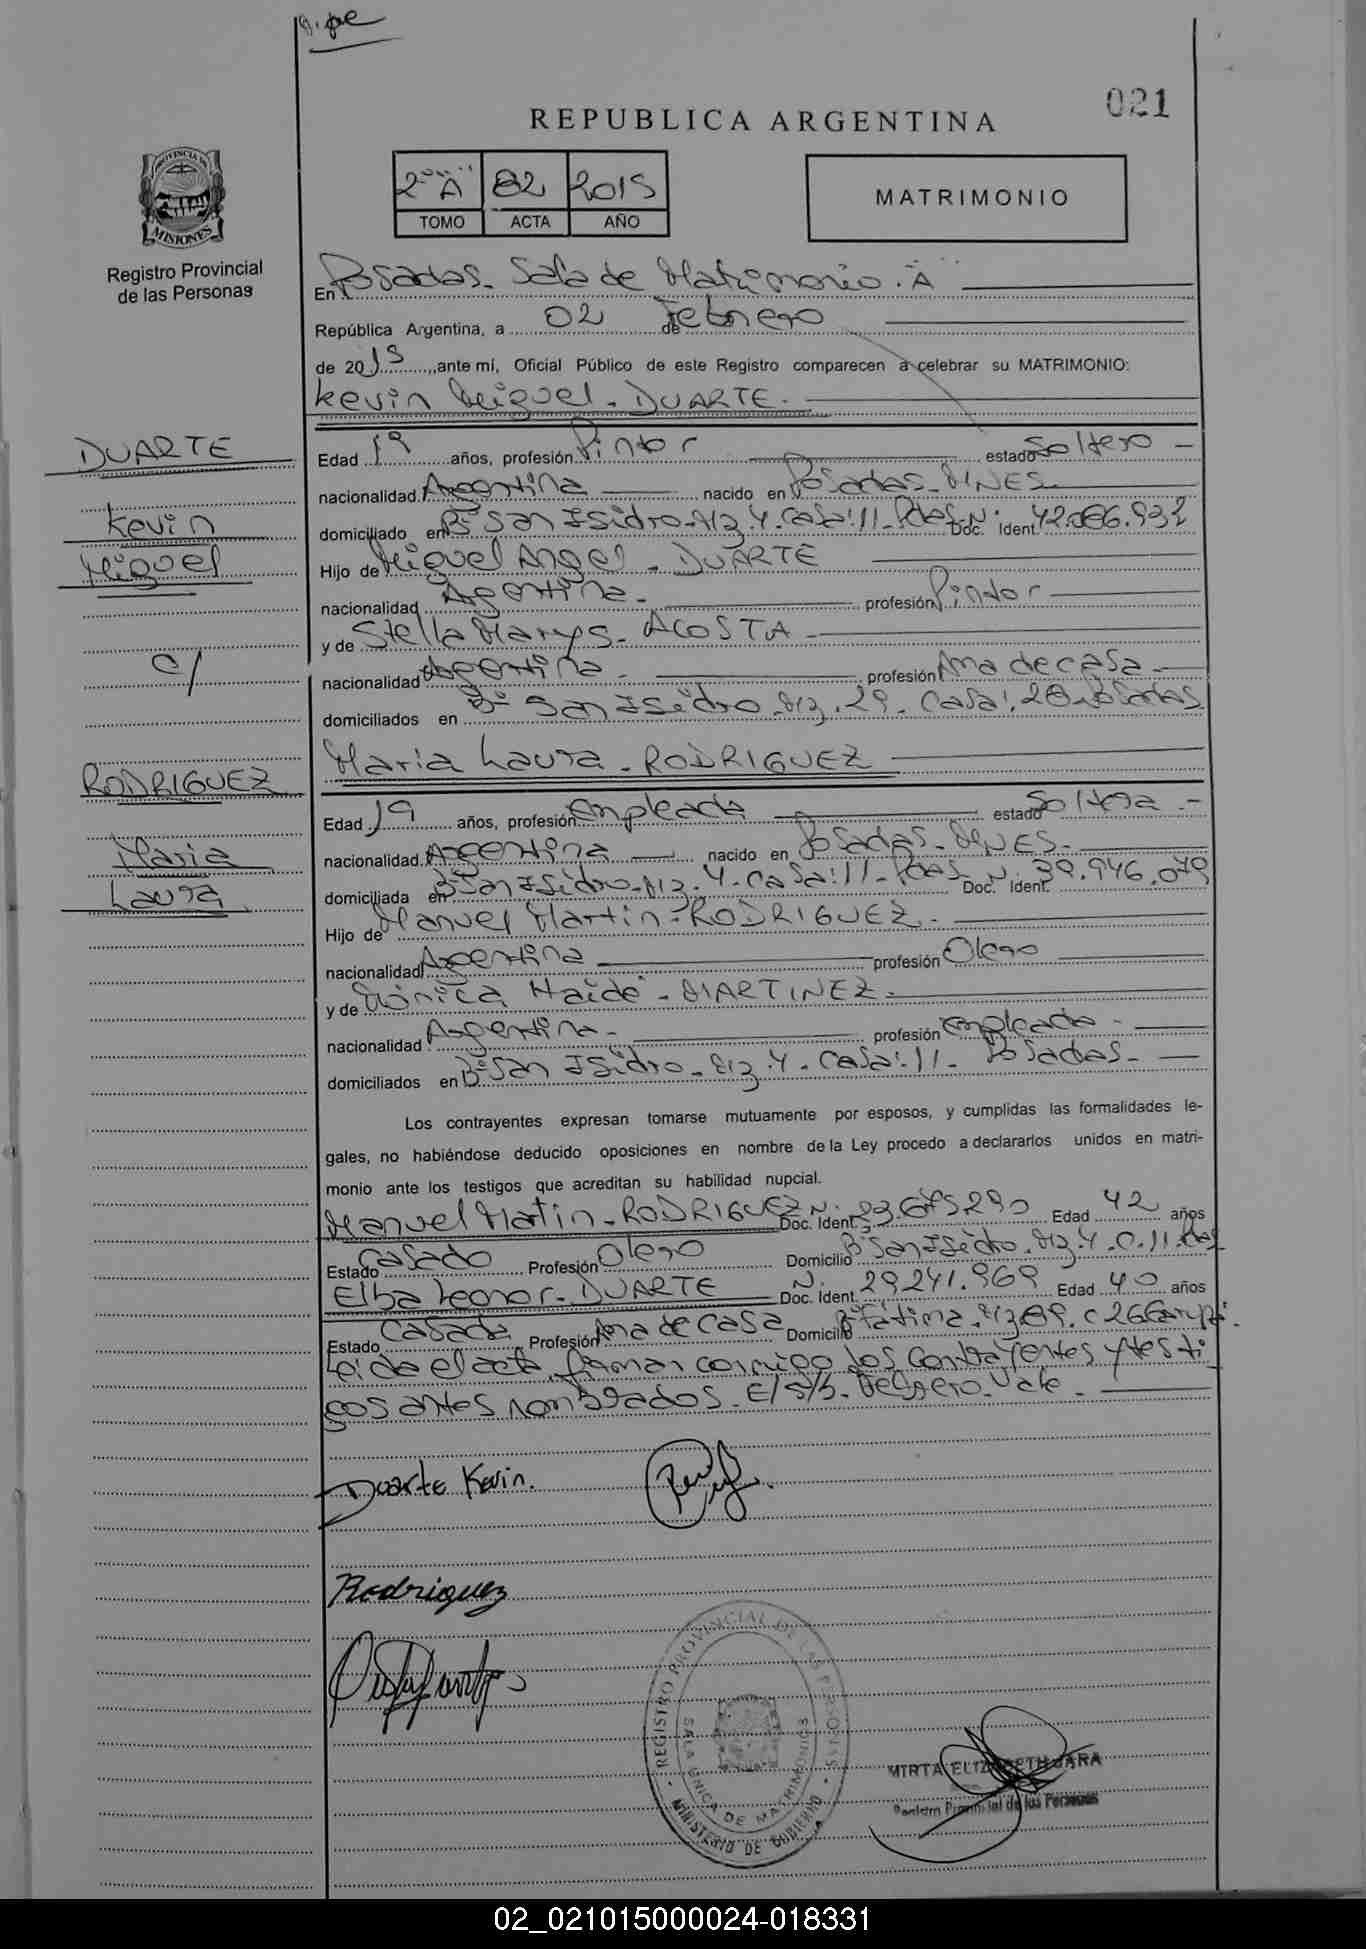 021
REPUBLICA ARGENTINA
PROVINCIA DE
MISIONES
Registro Provincial
de las Personas
2º "A" 82 2015
TOMO ACTA AÑO
MATRIMONIO
En Posadas. Sala de Matrimonio. "A"
República Argentina, a 02 de Febrero
de 2015, ante mí, Oficial Público de este Registro comparecen a celebrar su MATRIMONIO:
Kevin Miguel. DUARTE.
DUARTE
Edad 19 años, profesión Pintor estado Soltero
nacionalidad Argentina nacido en Posadas. MNES.
Kevin
domiciliado en Bº San Isidro. Mz. 4. Casa: 11. Pdas. Doc. Ident. N:
Miguel
Hijo de Miguel Angel. DUARTE
nacionalidad Argentina. profesión Pintor
y de Stella Marys. ACOSTA
c/
nacionalidad Argentina. profesión Ama de casa.
domiciliados en Bº San Isidro. Mz. 29. Casa: 20. Posadas
RODRIGUEZ
Maria Laura. RODRIGUEZ
Edad 19 años, profesión empleada estado Soltera.
Maria
nacionalidad Argentina nacido en Posadas. MNES.
Laura
domiciliada en Bº San Isidro. Mz. 4. Casa: 11. Pdas. Doc. Ident. N: 39.946.079
Hijo de Manuel Martin. RODRIGUEZ.
nacionalidad Argentina profesión Olero
y de Mónica Haidé. MARTINEZ.
nacionalidad Argentina. profesión empleada.
domiciliados en Bº San Isidro. Mz. 4. Casa: 11. Posadas.
Los contrayentes expresan tomarse mutuamente por esposos, y cumplidas las formalidades le-
gales, no habiéndose deducido oposiciones en nombre de la Ley procedo a declararlos unidos en matri-
monio ante los testigos que acreditan su habilidad nupcial.
Manuel Matin. RODRIGUEZ Doc. Ident. N: 23.675290 Edad 42 años
Estado Casado Profesión Olero Domicilio Bº San Isidro. Mz. 4. C. 11. Pdas
Elba Leonor. DUARTE Doc. Ident. N. 29241.969 Edad 40 años
Estado Casada Profesión Ama de casa Domicilio Bº Fátima. Mz 89. C 26 Garupá.
Leída el acta, firman conmigo los contrayentes y testi
gos antes nombrados. E/s/b. Febrero. Vale.
Duarte Kevin.
Rodriguez
REGISTRO PROVINCIAL DE LAS PERSONAS
SALA UNICA DE MATRIMONIOS
MINISTERIO DE GOBIERNO
MIRTA ELIZABETH JARA
Registro Provincial de las Personas
02_021015000024-018331